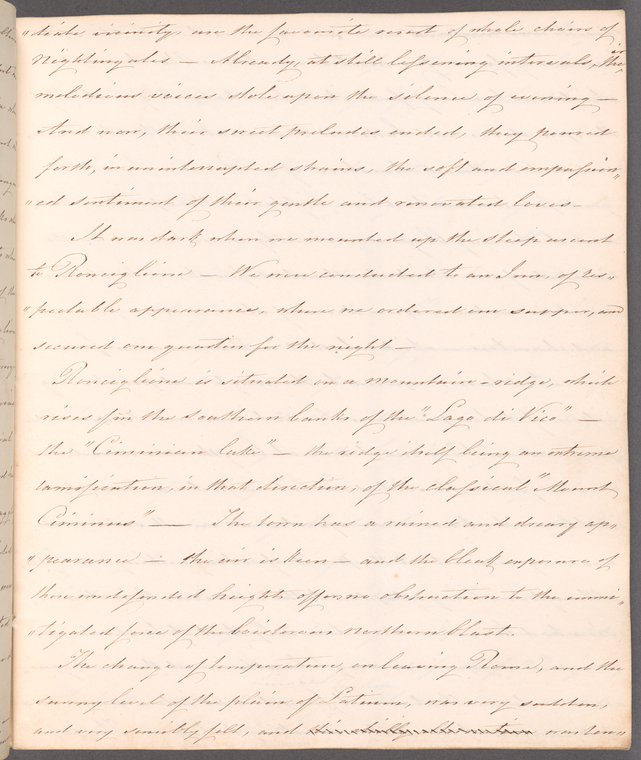 "diate vicinity, are the favourite resort of whole choirs of
Nightingales — Already, at still lessening intervals, their
melodious voices stole upon the silence of evening —
And now, their sweet preludes ended, they poured
forth, in uninterrupted strains, the soft and empassion"
"ed sentiment of their gentle and renovated loves —
It was dark when we mounted up the steep ascent
to Ronciglione — We were conducted to an Inn, of res"
"pectable appearance, where we ordered our supper, and
secured our quarters for the night —
Ronciglione is situated on a mountain-ridge, which
rises from the southern banks of the "Lago di Vico" —
the "Ciminian Lake" — the ridge itself being an extreme
ramification, in that direction, of the classical "Mount
Ciminus" — The town has a ruined and dreary ap"
"pearance — the air is keen — and the bleak exposure of
these undefended heights offers no obstruction to the unmi"
"tigated force of the boisterous northern blast.
The change of temperature, on leaving Rome, and the
sunny level of the plain of Latium, was very sudden,
and very sensibly felt, and was ren"